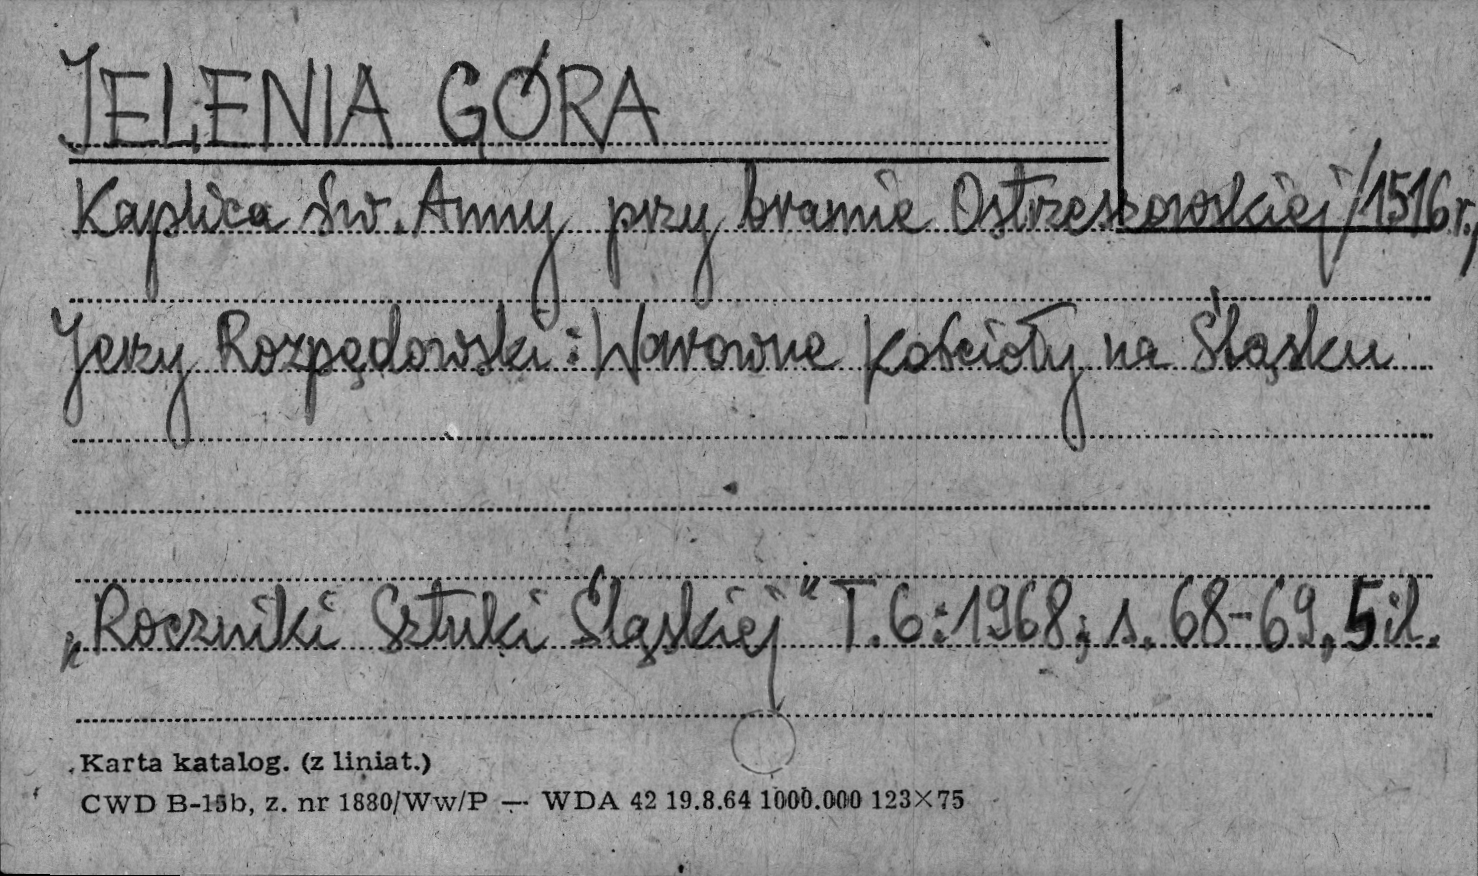 JELENIA GÓRA
Kaplica św. Anny przy bramie Ostrzeszowskiej /1516 r./
Jerzy Rozpędowski: Warowne kościoły na Śląsku
„Roczniki Sztuki Śląskiej" T. 6: 1968; s. 68-69, 5 il.
Karta katalog. (z liniat.)
CWD B-15b, z. nr 1880/Ww/P — WDA 42 19.8.64 1000.000 123×75